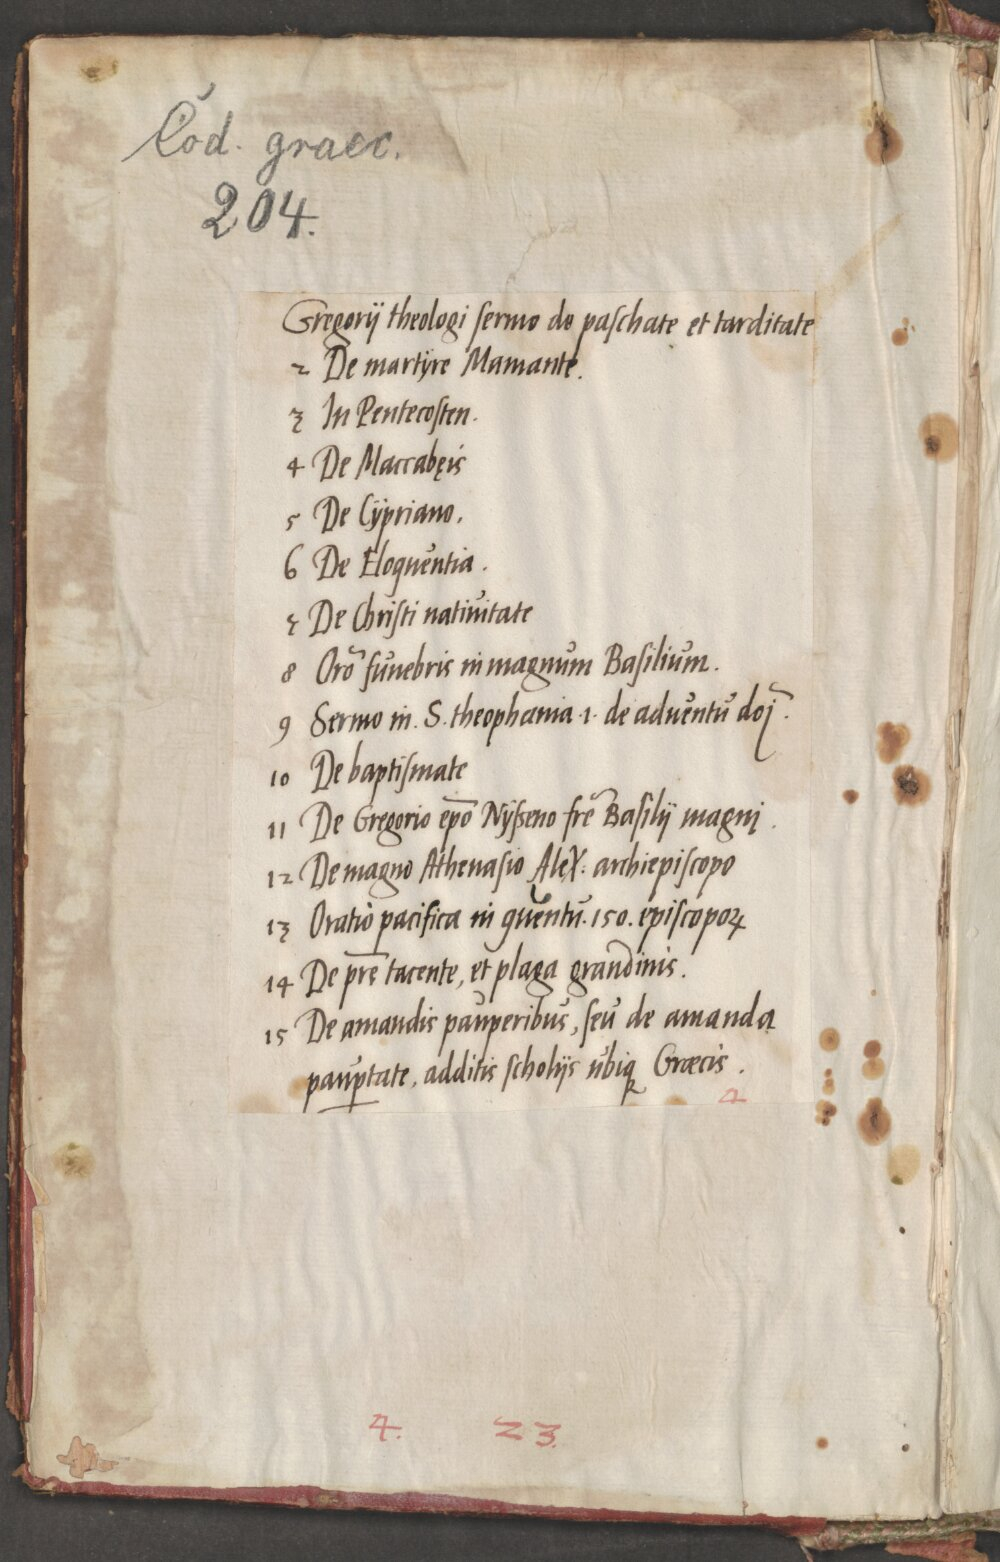 Cod. graec.
204.
Gregorij theologi sermo de paschate et tarditate
2 De martyre Mamante.
3 In Pentecosten.
4 De Maccabęis
5 De Cypriano.
6 De Eloquentia.
7 De Christi natiuitate
8 Orō funebris in magnum Basilium.
9 Sermo in. S. theophania .1. de aduentu doj̄.
10 De baptismate
11 De Gregorio epō Nysseno frē Basilij magni.
12 De magno Athenasio Alex: archiepiscopo
13 Oratio pacifica in quentū. 150. episcoporꝝ
14 De prē tacente, et plaga grandinis.
15 De amandis pauperibus, seu de amanda
paup̱tate, additis scholijs ubiqꝫ Græcis.
4. 23.